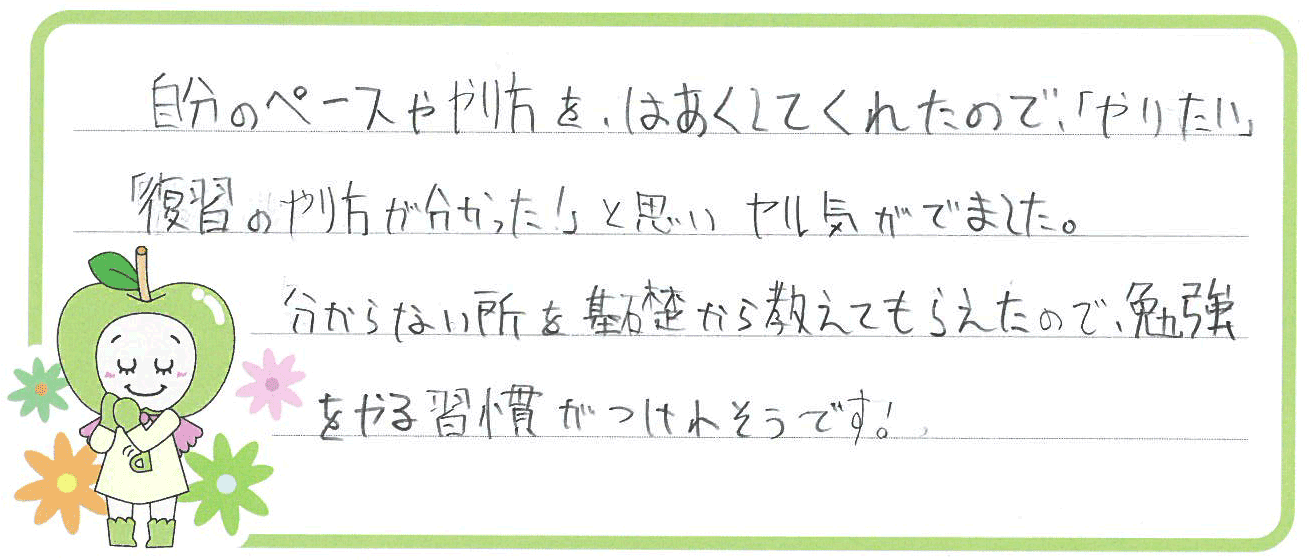 自分のペースややり方を、はあくしてくれたので、「やりたい」
「復習のやり方が分かった!」と思い ヤル気がでました。
分からない所を基礎から教えてもらえたので、勉強
をやる習慣がつけれそうです!